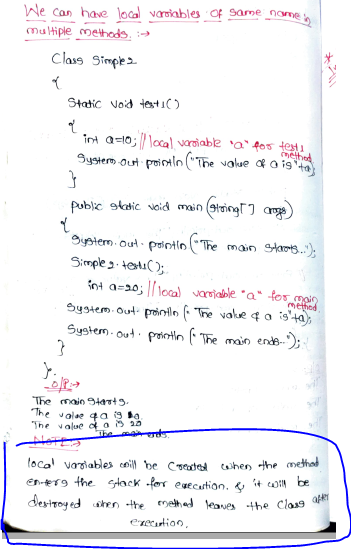 We can have local variables of same name in
multiple methods. :→
Class Simple2
{
Static void test1()
{
int a=10; //local variable "a" for test1
method
System.out.println("The value of a is"+a);
}
public static void main(String[] args)
{
System.out.println("The main starts..");
Simple2.test1();
int a=20; //local variable "a" for main
method
System.out.println("The value of a is"+a);
System.out.println("The main ends..");
}
}.
O/P:→
The main starts.
The value of a is 10
The value of a is 20
The main ends.
NOTE:→
local variables will be Created when the method
enters the stack for execution. & it will be
destroyed when the method leaves the Class after
execution.